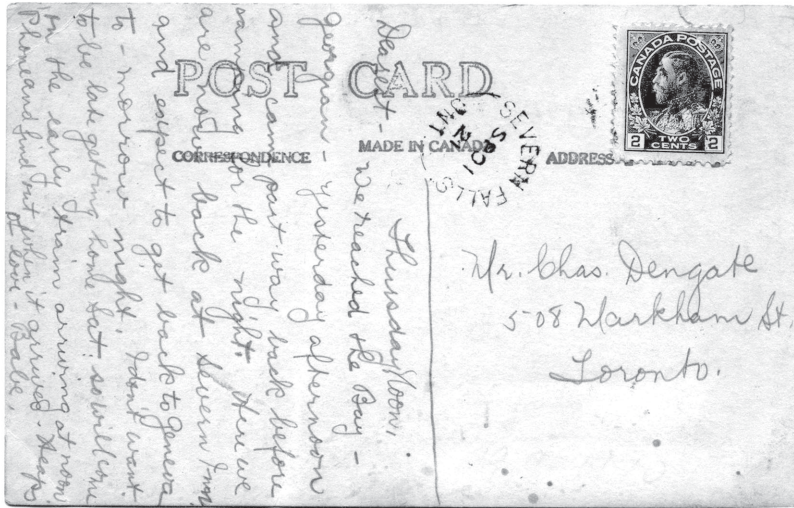 POST CARD
CORRESPONDENCE
MADE IN CANADA
ADDRESS
CANADA POSTAGE
2 TWO CENTS 2
SEVERN FALLS
ONT
Mr. Chas. Dengate
508 Markham St.
Toronto.
Thursday Noon,
Dearest - We reached the Bay -
Georgian - yesterday afternoon
and came part way back before
camping for the night. Here we
are now back at Severn
and expect to get back to Geneva
to-morrow night. I don't want
to be late getting home Sat. so will come
on the early train arriving at noon
Phone and find out when it arrives. Heaps
I love - Babe.